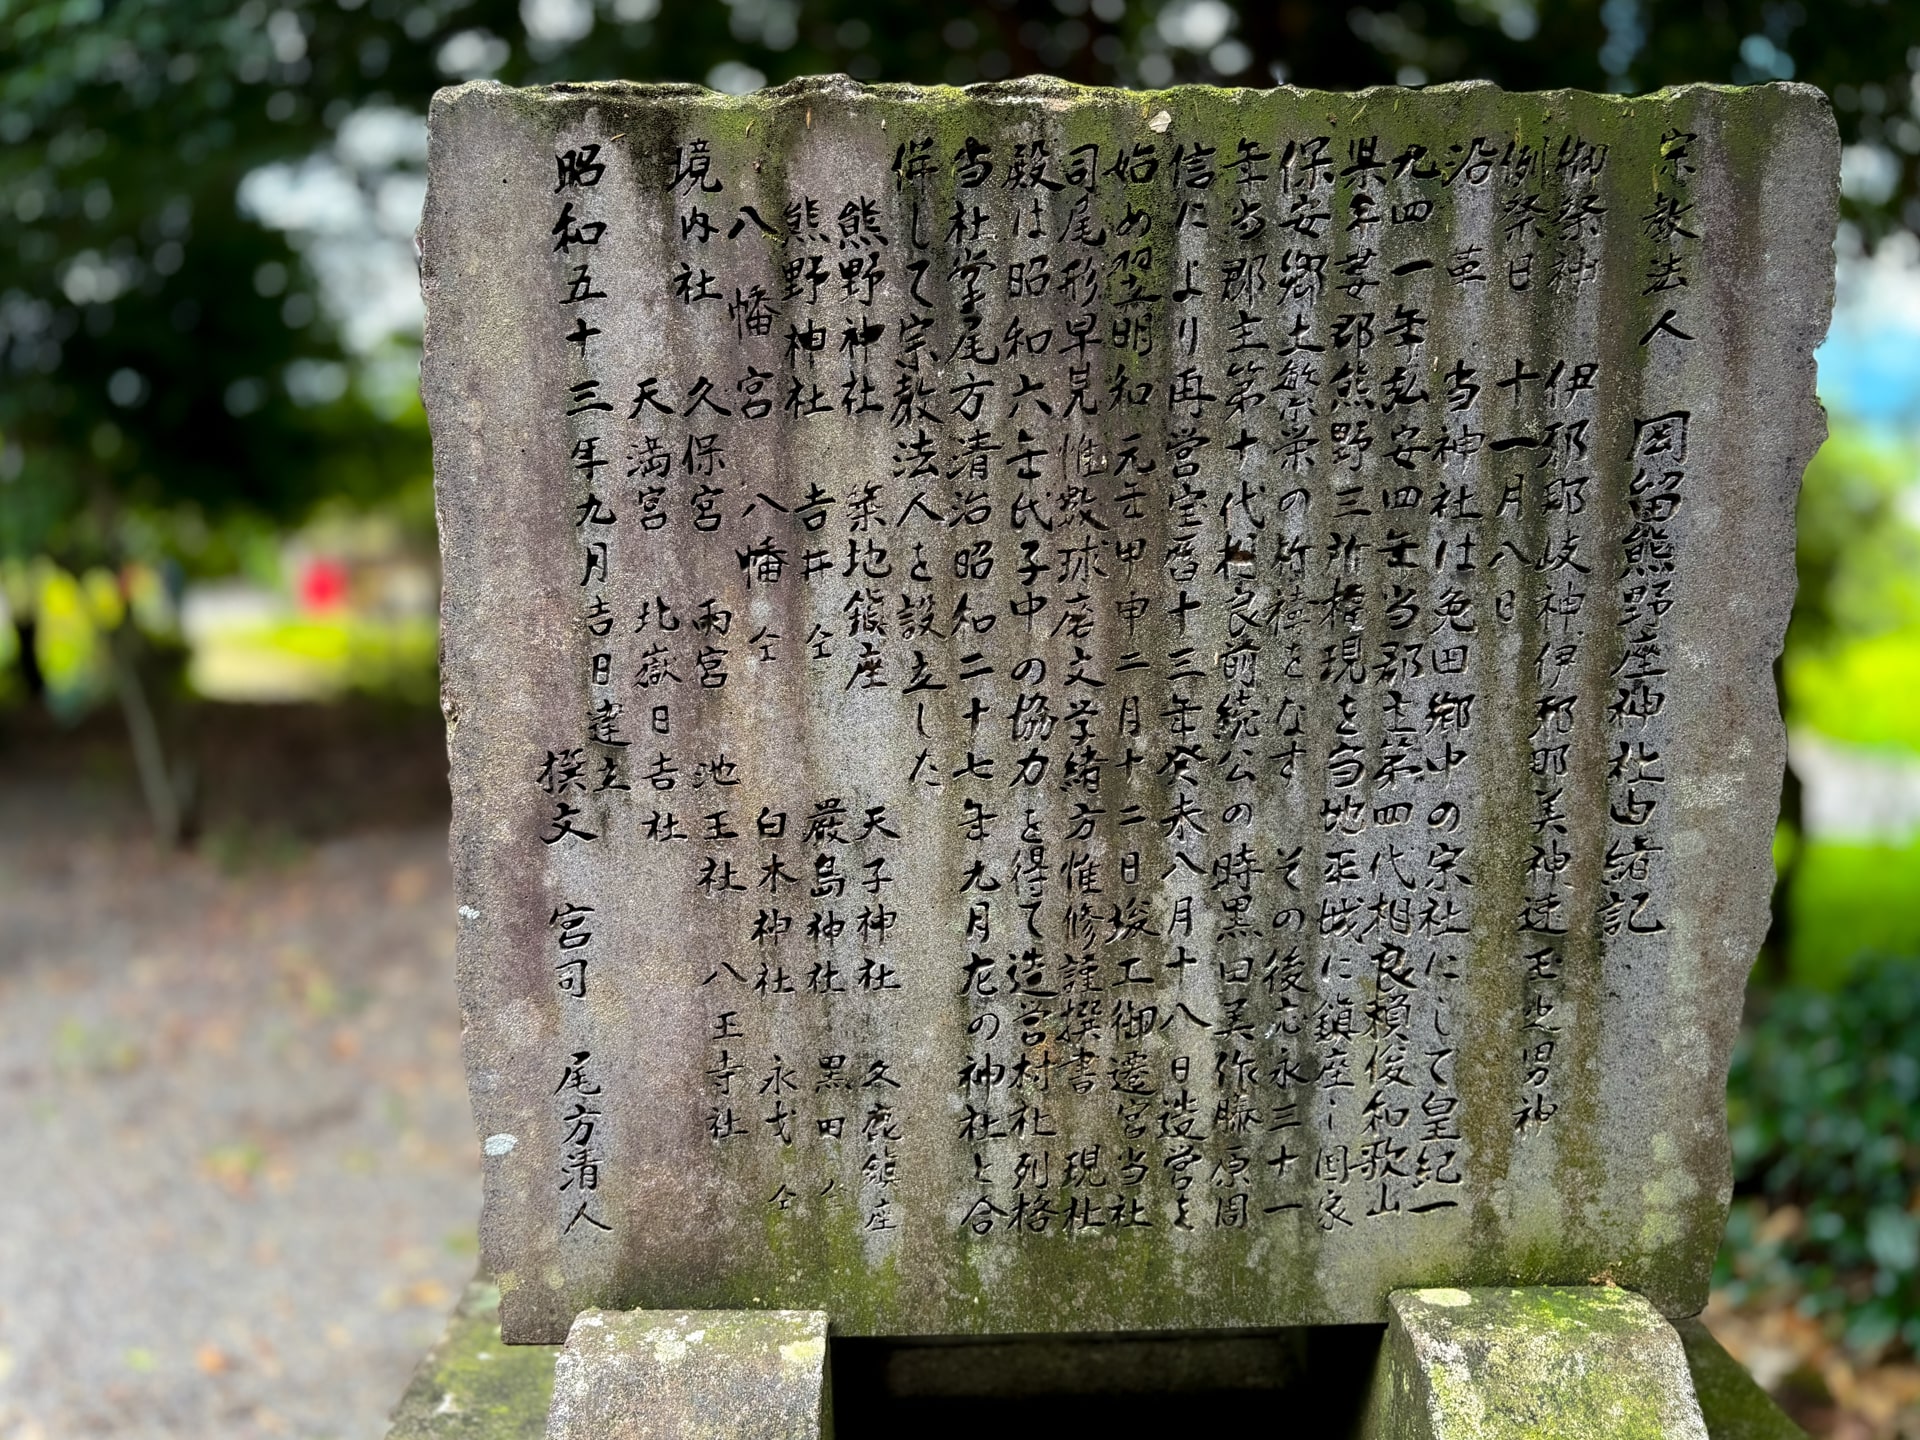 宗教法人 岡留熊野座神社由緒記
御祭神 伊邪那岐神伊邪那美神速玉之男神
例祭日 十一月八日
沿革 当神社は免田郷中の宗社にして皇紀一
九四一年弘安四年当郡主第四代相良頼俊和歌山
県牟婁郡熊野三所権現を当地正域に鎮座し国家
保安郷土繁栄の祈祷をなす その後応永三十一
年当郡主第十代相良前続公の時黒田美作藤原周
信により再営宝暦十三年癸未八月十八日造営を
始め翌明和元年甲申二月十二日竣工御遷宮当社
司尾形早見惟数球磨文学緒方惟修謹撰書 現社
殿は昭和六年氏子中の協力を得て造営村社列格
当社掌尾方清治昭和二十七年九月左の神社と合
併して宗教法人を設立した
熊野神社 築地鎮座 天子神社 久鹿鎮座
熊野神社 吉井仝 厳島神社 黒田仝
八幡宮 八幡仝 白木神社 永才仝
境内社 久保宮 雨宮 池王社 八王寺社
天満宮 北嶽日吉社
昭和五十三年九月吉日建立
撰文 宮司 尾方清人